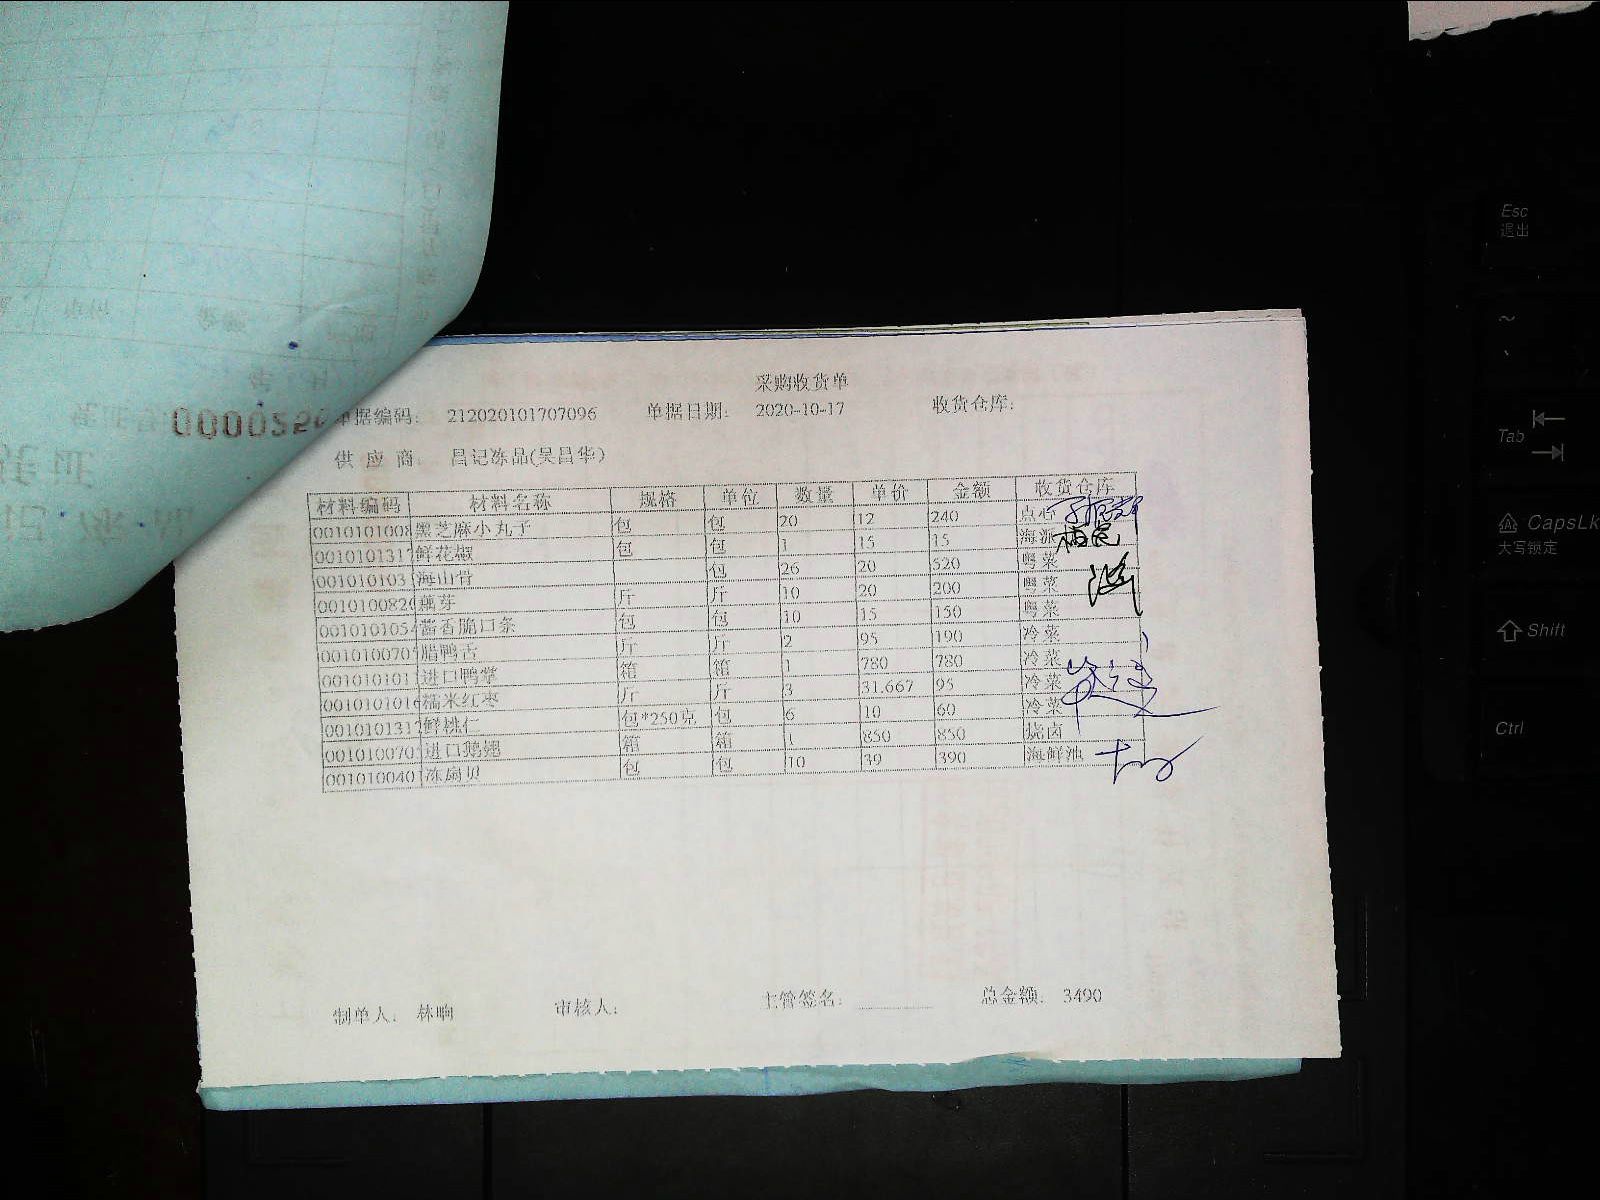 采购收货单
单据编码: 212020101707096 单据日期: 2020-10-17 收货仓库:
供应商: 昌记冻品(吴昌华)
材料编码 材料名称 规格 单位 数量 单价 金额 收货仓库
0010101008 黑芝麻小丸子 包 包 20 12 240 点心
001010131 鲜花椒 包 包 1 15 15 海派
001010103 海山骨 包 26 20 520 粤菜
001010082 藕芽 斤 斤 10 20 200 粤菜
001010105 酱香脆口条 包 包 10 15 150 粤菜
001010070 腊鸭舌 斤 斤 2 95 190 冷菜
001010101 进口鸭掌 箱 箱 1 780 780 冷菜
001010101 糯米红枣 斤 斤 3 31.667 95 冷菜
001010131 鲜桃仁 包*250克 包 6 10 60 冷菜
001010070 进口鹅翅 箱 箱 1 850 850 烧卤
001010040 冻扇贝 包 包 10 39 390 海鲜池
制单人: 林响 审核人: 主管签名: 总金额: 3490
Esc
退出
~
Tab
CapsLk
大写锁定
Shift
Ctrl